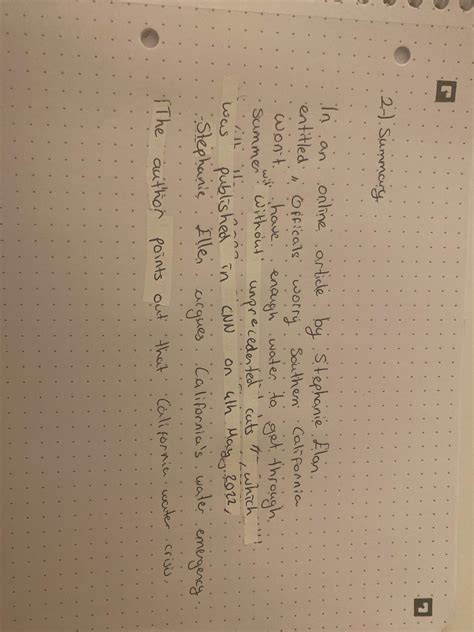 2.) Summary
In an online article by Stephanie Elan
entitled „ Officals worry Southern California
won't have enough water to get through
summer without unprecedented cuts ", which
was published in CNN on 4th May 2022,
Stephanie Ellen argues California's water emergency.
The author points out that California water crisis,